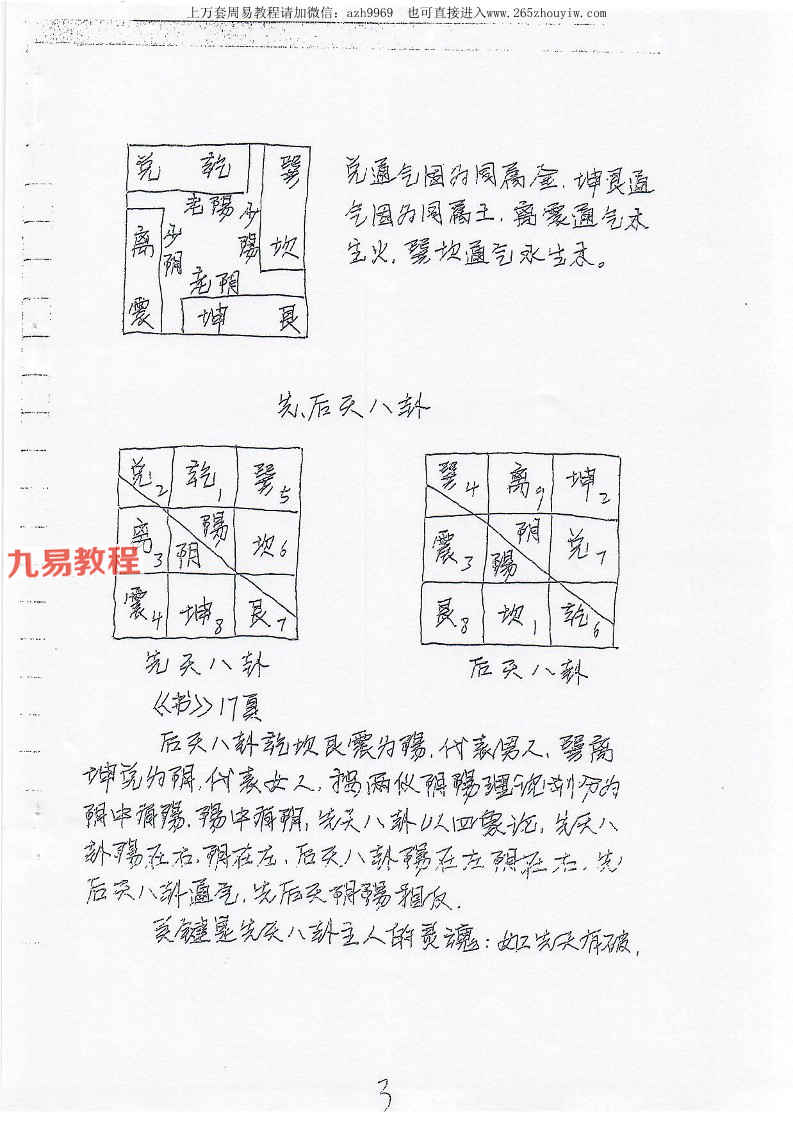 上万套周易教程请加微信：azh9969 也可直接进入www.265zhouyiw.com
兑 乾 巽
老陽
离 少阴 少陽 坎
老阴
震 坤 艮
兑通气因为同属金，坤艮通
气因为同属土，离震通气木
生火，巽坎通气水生木。
先、后天八卦
兑2 乾1 巽5
离3 阴 陽 坎6
震4 坤8 艮7
先天八卦
《书》17頁
巽4 离9 坤2
震3 陽 阴 兑7
艮8 坎1 乾6
后天八卦
九易教程
后天八卦乾坎艮震为陽，代表男人，巽离
坤兑为阴，代表女人，按两仪阴陽理论划分的
阴中有陽，陽中有阴，先天八卦以四象论，先天八
卦陽在右，阴在左，后天八卦陽在左阴在右，先
后天八卦通气，先后天阴陽相反．
关键是先天八卦主人的灵魂：如先天有破，
3